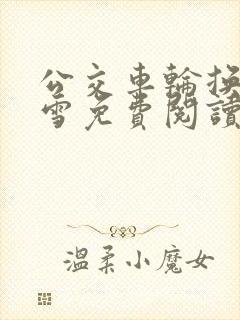 公交車輪換
雪免費閱讀
溫柔小魔女